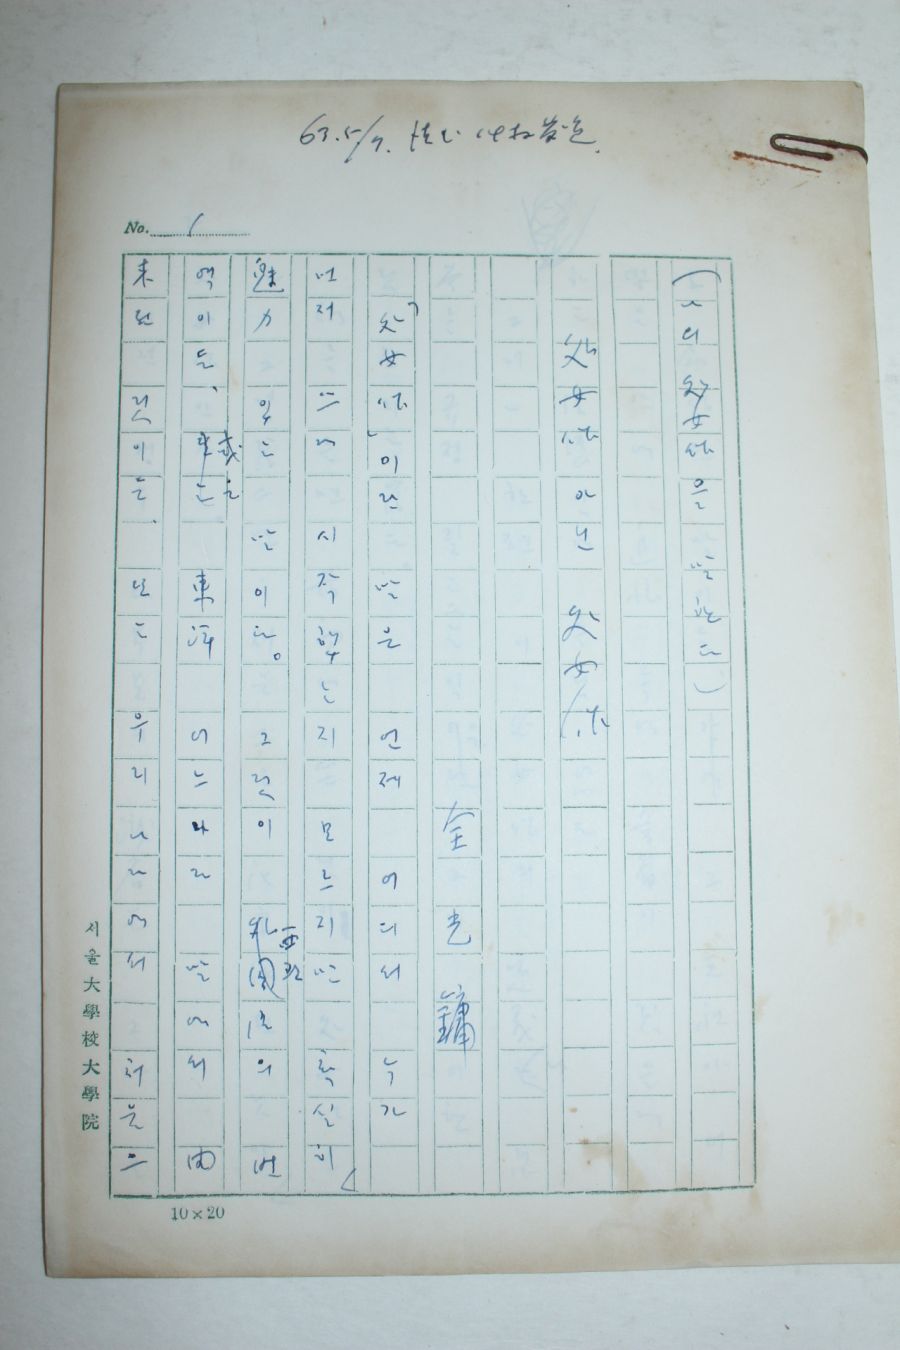 No. 1
(나의 處女作을 말한다)
處女作 아닌 處女作
全光鏞
「處女作」이란 말은 언제 어디서 누가
먼저 쓰기 시작했는지 모르지만 확실히
魅力 있는 말이다. 그것이 西歐 의 飜
역이든, 或은 東洋 어느나라 말에서 由
来된 것이든, 또는 우리나라에서 처음으
서울大學校大學院
10×20